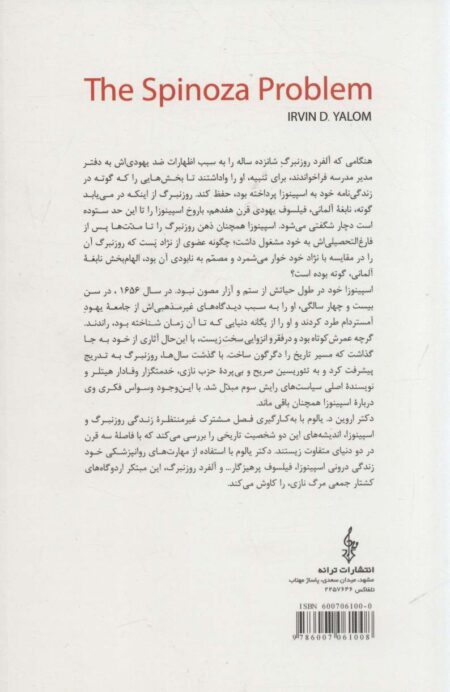 The Spinoza Problem
IRVIN D. YALOM
هنگامی که آلفرد روزنبرگِ شانزده ساله را به سبب اظهارات ضد یهودی‌اش به دفتر
مدیر مدرسه فراخواندند، برای تنبیه، او را واداشتند تا بخش‌هایی را که گوته در
زندگی‌نامه خود به اسپینوزا پرداخته بود، حفظ کند. روزنبرگ از اینکه در می‌یابد
گوته، نابغهٔ آلمانی، فیلسوف یهودی قرن هفدهم، باروخ اسپینوزا را تا این حد ستوده
دچار شگفتی می‌شود. اسپینوزا همچنان ذهن روزنبرگ را تا مدّت‌ها پس از
فارغ‌التحصیلی‌اش به خود مشغول داشت؛ چگونه عضوی از نژاد پَست که روزنبرگ آن
را در مقایسه با نژاد خود خوار می‌شمرد و مصمّم به نابودی آن بود، الهام‌بخش نابغهٔ
آلمانی، گوته بوده است؟
اسپینوزا خود در طول حیاتش از ستم و آزار مصون نبود. در سال ۱۶۵۶ ، در سن
بیست و چهار سالگی، او را به سبب دیدگاه‌های غیرمذهبی‌اش از جامعهٔ یهودِ
آمستردام طرد کردند و او را از یگانه دنیایی که تا آن زمان شناخته بود، راندند.
گرچه عمرش کوتاه بود و در فقر و انزوایی سخت زیست، با این‌حال آثاری از خود به جا
گذاشت که مسیر تاریخ را دگرگون ساخت. با گذشت سال‌ها، روزنبرگ به تدریج
پیشرفت کرد و به تئوریسین صریح و بی‌پردهٔ حزب نازی، خدمتگزار وفادار هیتلر و
نویسندهٔ اصلی سیاست‌های رایش سوم مبدّل شد. با این‌وجود وسواس فکری وی
دربارهٔ اسپینوزا همچنان باقی ماند.
دکتر اروین د. یالوم با به‌کارگیری فصل مشترک غیرمنتظرهٔ زندگی روزنبرگ و
اسپینوزا، اندیشه‌های این دو شخصیت تاریخی را بررسی می‌کند که با فاصلهٔ سه قرن
در دو دنیای متفاوت زیستند. دکتر یالوم با استفاده از مهارت‌های روانپزشکی خود
زندگی درونی اسپینوزا، فیلسوف پرهیزگار... و آلفرد روزنبرگ، این مبتکر اردوگاه‌های
کشتار جمعی مرگ نازی، را کاوش می‌کند.
انتشارات ترانه
مشهد، میدان سعدی، پاساژ مهتاب
تلفاکس ۲۲۵۷۶۴۶
ISBN 600706100-0
9786007061008